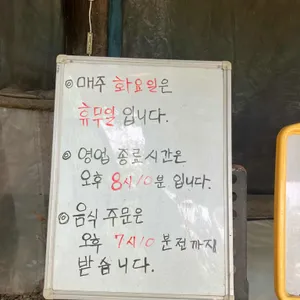 ◎ 매주 화요일은
휴무일 입니다.
◎ 영업 종료시간은
오후 8시10분 입니다.
◎ 음식 주문은
오후 7시10분전까지
받습니다.